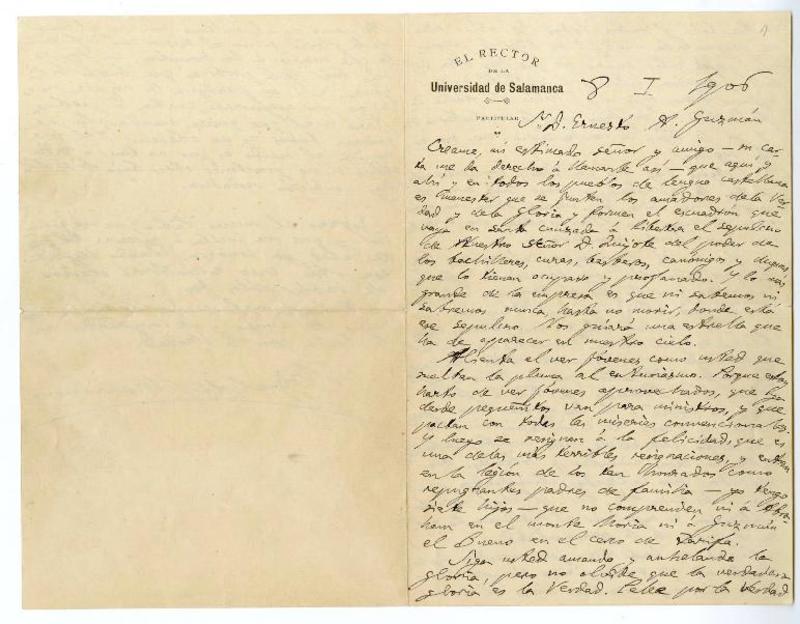 EL RECTOR
DE LA
Universidad de Salamanca
PARTICULAR
8 I 1906
Sr. D. Ernesto A. Guzmán
Creame, mi estimado señor y amigo — su car-
ta me da derecho á llamarle así — que aquí y
ahí y en todos los pueblos de lengua castellana
es menester que se junten los amadores de la Ver-
dad y de la Gloria y formen el escuadrón que
vaya en santa cruzada á libertar el sepulcro
de Nuestro Señor D. Quijote del poder de
los bachilleres, curas, barberos, canónigos y duques
que lo tienen ocupado y profanado. Y lo más
grande de la empresa es que ni sabemos ni
sabremos nunca, hasta no morir, donde está
ese sepulcro. Nos guiará una estrella que
ha de aparecer en nuestro cielo.
Alienta el ver jóvenes como usted que
sueltan la pluma al entusiasmo. Porque estoy
harto de ver jóvenes aprovechados, que
desde pequeñitos van para ministros, y que
pactan con todas las miserias convencionales.
Y luego se resignan á la felicidad, que es
una de las más terribles resignaciones, y entran
en la legión de los tan honrados como
repugnantes padres de familia — yo tengo
siete hijos — que no comprenden ni á Abra-
ham en el monte Moria ni á Guzmán
el Bueno en el cerco de Tarifa.
Siga usted amando y anhelando la
gloria, pero no olvide que la verdadera
gloria es la Verdad. Pelee por la verdad